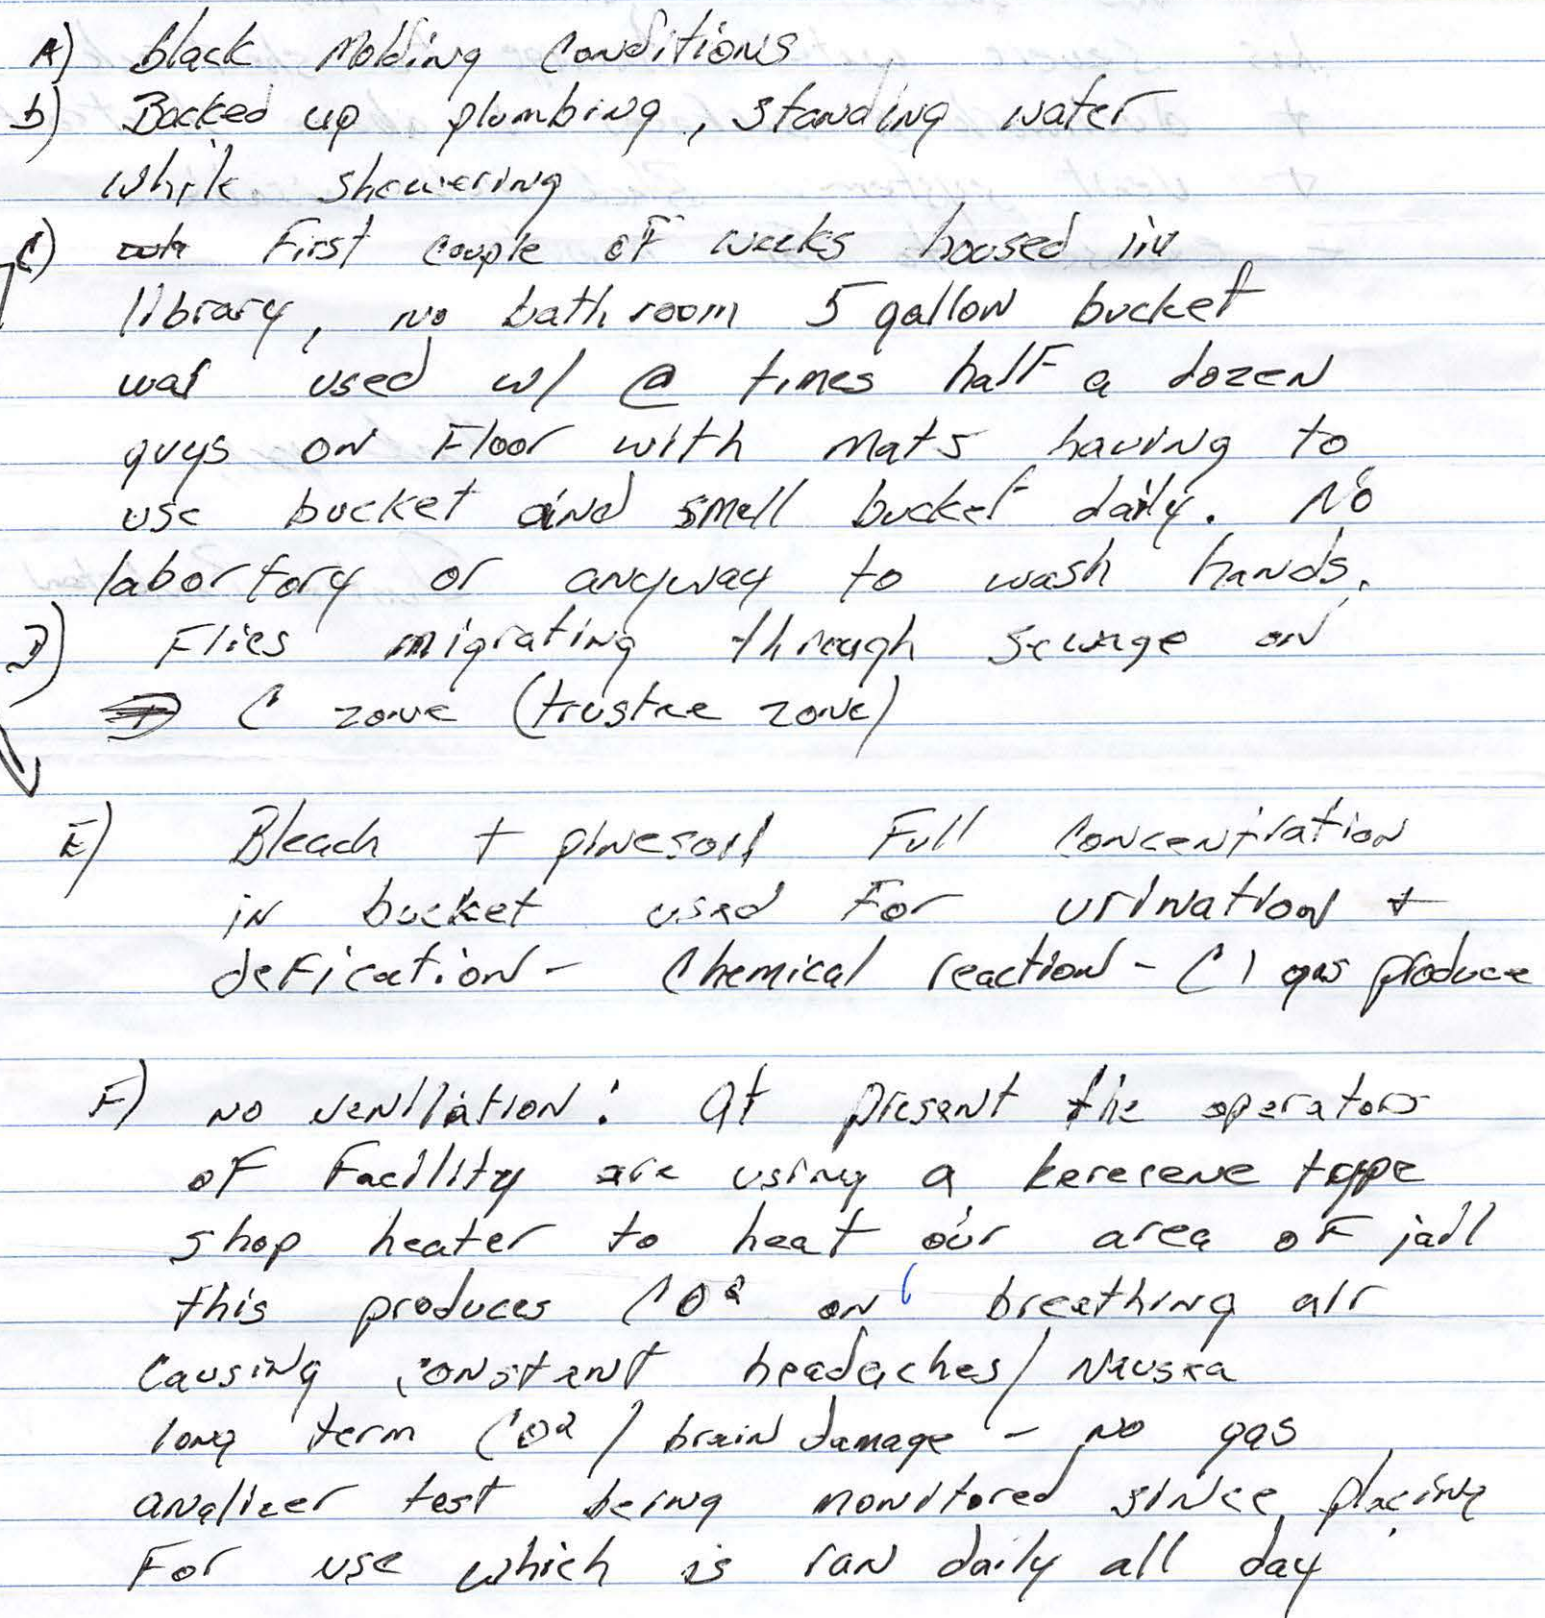 A) black Molding Conditions
b) Backed up plumbing, standing water
while showering
C) First couple of weeks housed in
library, no bathroom 5 gallon bucket
was used w/ @ times half a dozen
guys on Floor with mats having to
use bucket and smell bucket daily. No
labortory or anyway to wash hands.
D) Flies migrating through sewage on
C zone (trustee zone)
E) Bleach + pinesoil Full Concentration
in bucket used For urination +
defication - Chemical reaction - Cl gas produce
F) no ventilation: at present the operators
of Facility are using a keresene type
shop heater to heat our area of jail
this produces CO2 on breathing air
Causing constant headaches/ Nausea
long term CO2 / brain damage - no gas
analizer test being monitored since placing
For use which is ran daily all day